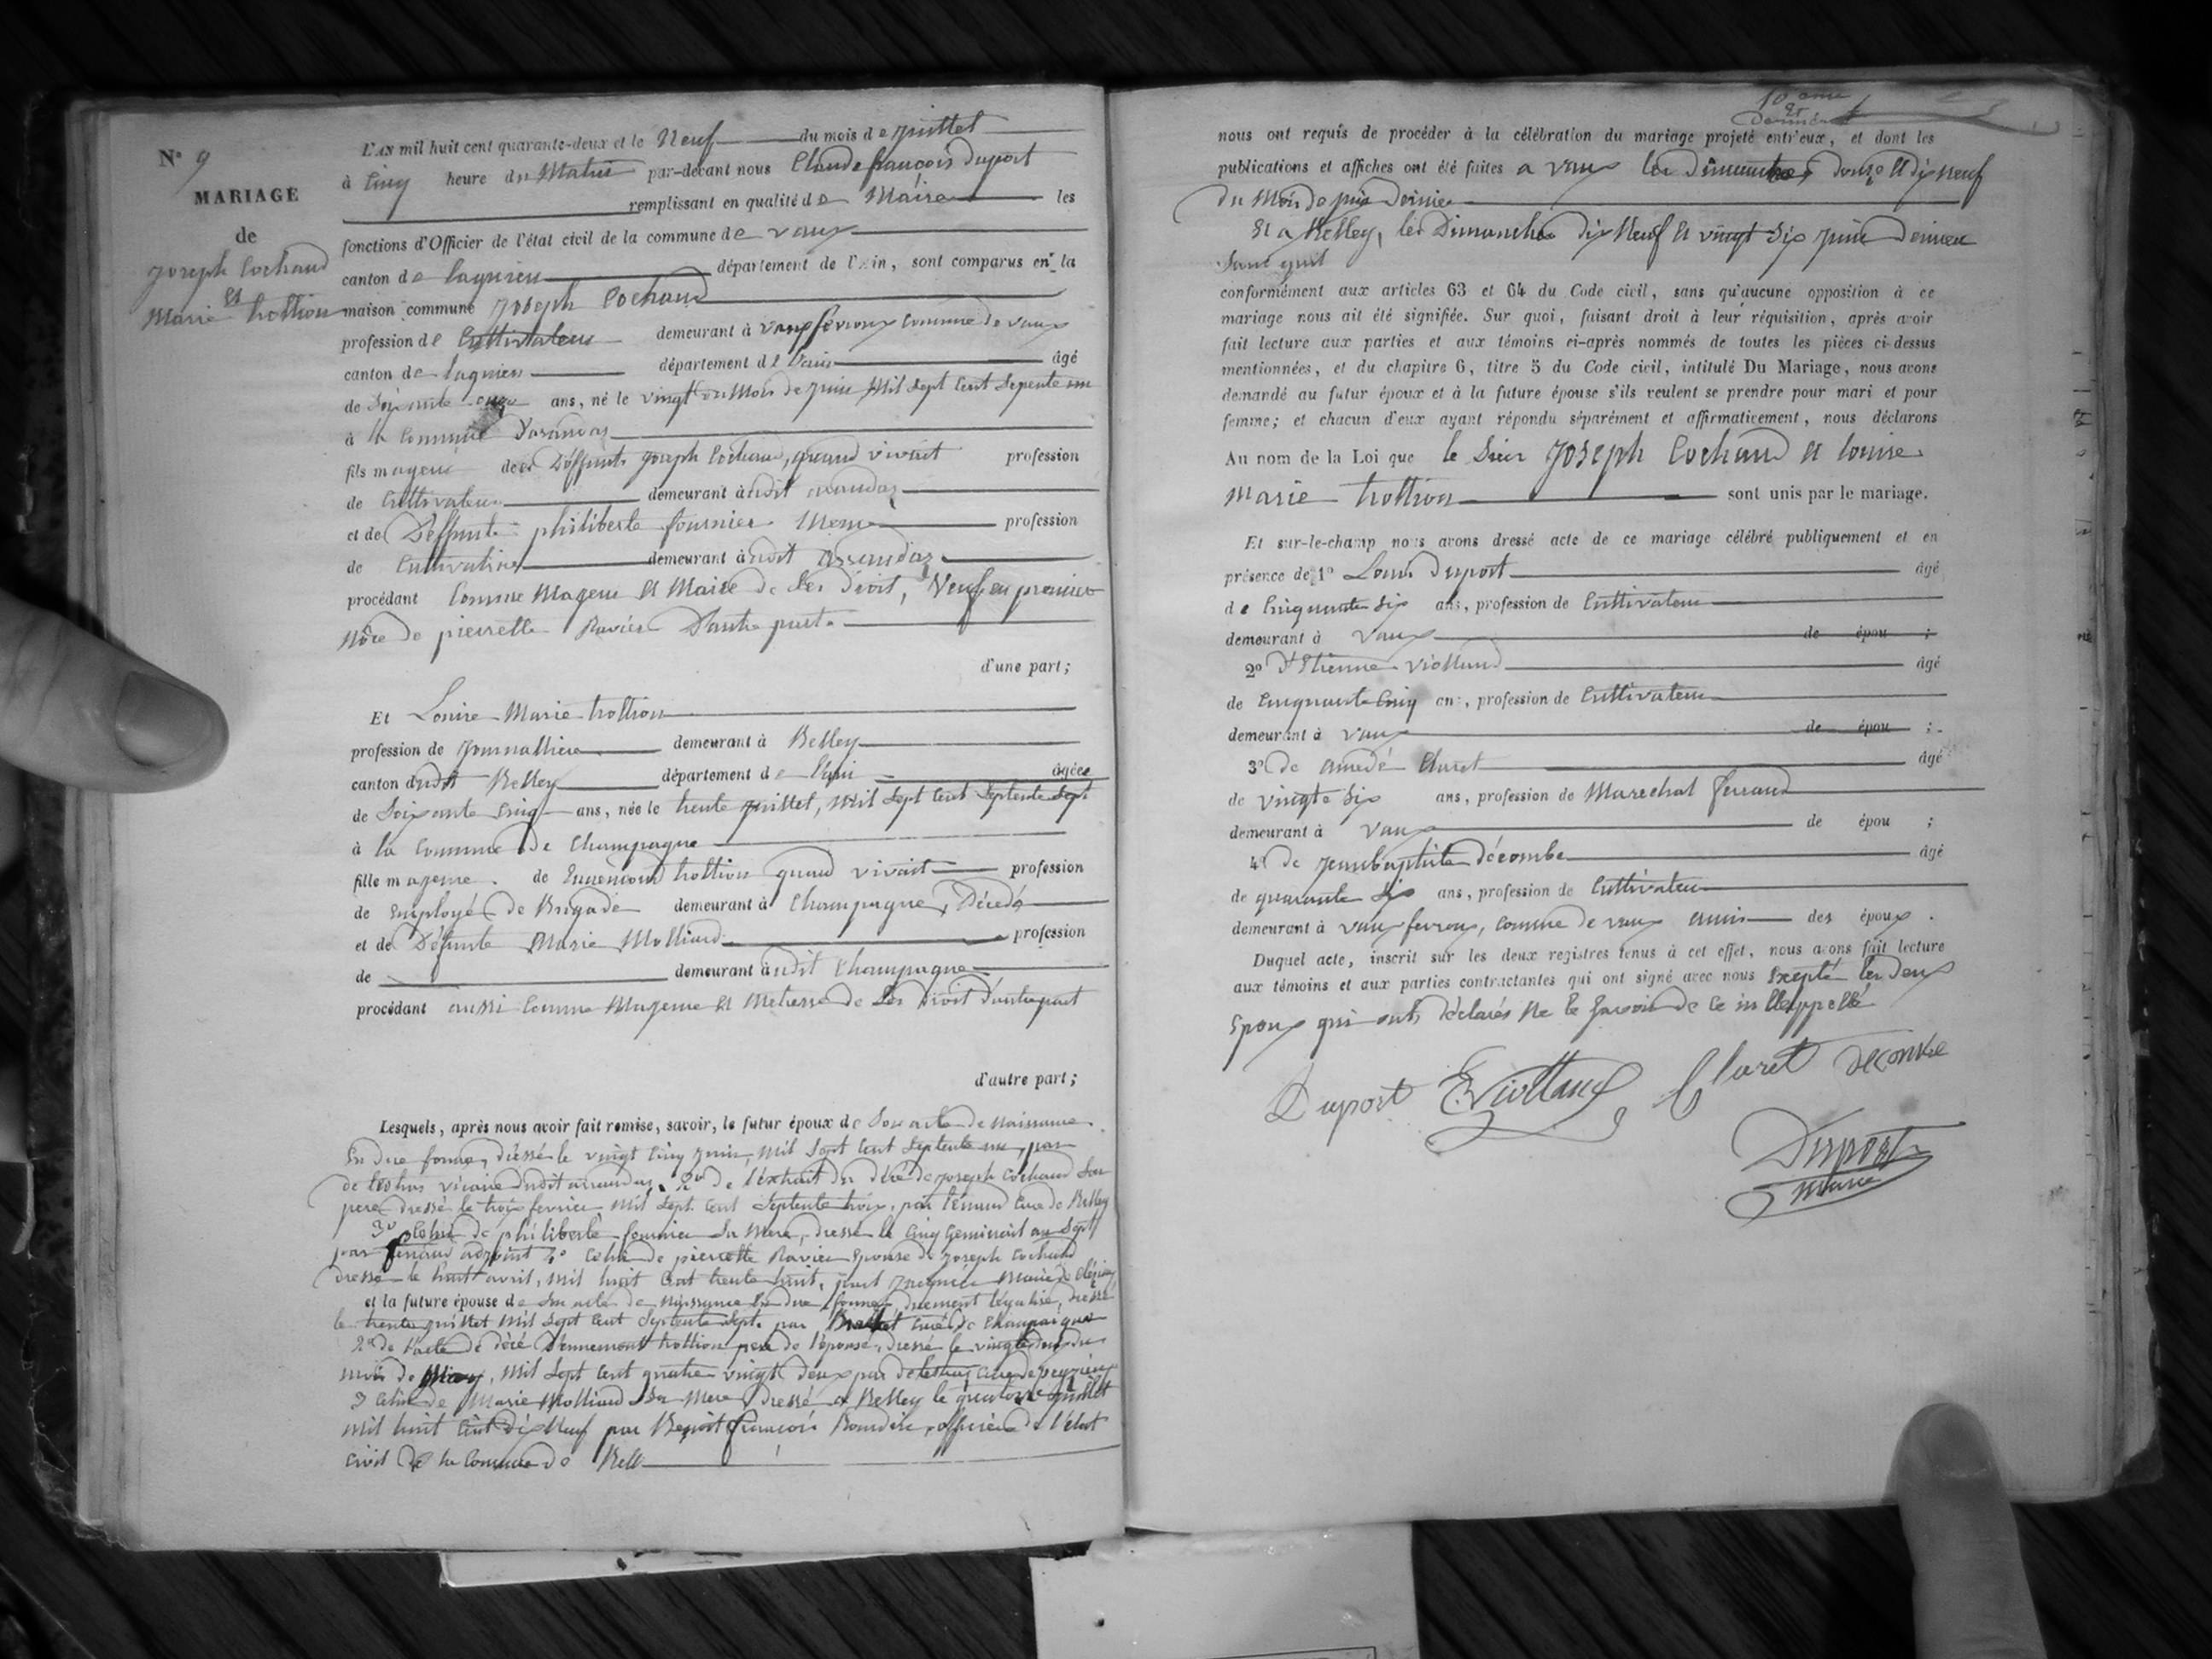 N° 9
MARIAGE
de
Joseph Cochaud
et
Marie trottion
L'AN mil huit cent quarante-deux et le Neuf du mois de juillet
à Cinq heure du Matin par-devant nous Claude françois duport
remplissant en qualité de Maire les
fonctions d'Officier de l'état civil de la commune de vaux
canton de lagnieu département de l'Ain, sont comparus en la
maison commune Joseph Cochaud
profession de Cultivateur demeurant à vaux fevroux Commune de vaux
canton de lagnieu département de l'ain âgé
de Soixante onze ans, né le vingt du Mois de juin Mil Sept Cent Septente un
à la Commune
fils mageur des Déffunts joseph Cochaud, quand vivait profession
de Cultivateur demeurant à udit
et de Deffunte philiberte fournier Meme profession
de Cultivatrice demeurant à udit
procédant Comme Mageur et Maitre de Ses droit, Veuf en premier
Nôce de pierrette Ravier D'autre part
d'une part;
Et Louise Marie trottion
profession de journallière demeurant à Belley
canton dudit Belley département de l'ain âgée
de Soixante Cinq ans, née le trente juillet, Mil Sept Cent Septente Sept
à la Commune de Champagne
fille mageure de trottion quand vivait profession
de Employé de Brigade demeurant à Champagne, Décédé
et de Défunte Marie Molliard profession
de demeurant à udit Champagne
procédant aussi Comme Mageure et Metresse de Ses Droit d'autre part
d'autre part;
Lesquels, après nous avoir fait remise, savoir, le futur époux de Son acte de Naissance
En due forme, dressé le vingt Cinq juin, Mil Sept Cent Septente un, par
vicaire dudit 2° de l'extrait du décé de joseph Cochaud Son
pere, dressé le trois fevrier Mil Sept Cent Septente trois, par Curé de Belley
3° Celui de philiberte fournier Sa Mere, dressé le Cinq Germinal an Sept
par adjoint 4° Celui de pierrette Ravier Epouse de joseph Cochaud
dressé le huit avril, Mil huit Cent trente huit, par Maire de
et la future épouse de Son acte de Naissance En due forme duement légalisé, dressé
le trente juillet Mil Sept Cent Septente Sept, par Curé de Champagne
2° de l'acte de décé trottion pere de l'épouse, dressé le vingt deux du
mois de May, Mil Sept Cent quatre vingt deux par
3 Celui de Marie Molliard Sa Mere dressé a Belley le quatorze juillet
Mil huit Cent Dix Neuf par Benoit françois officier de l'état
Civil de la Commune de Bell
10 eme
et
dernier
nous ont requis de procéder à la célébration du mariage projeté entr'eux, et dont les
publications et affiches ont été faites a vaux les dimanches douze et dix neuf
du Mois de juin Dernier
Et a Belley, les Dimanches dix Neuf et vingt Six juin Dernier
conformément aux articles 63 et 64 du Code civil, sans qu'aucune opposition à ce
mariage nous ait été signifiée. Sur quoi, faisant droit à leur réquisition, après avoir
fait lecture aux parties et aux témoins ci-après nommés de toutes les pièces ci-dessus
mentionnées, et du chapitre 6, titre 5 du Code civil, intitulé Du Mariage, nous avons
demandé au futur époux et à la future épouse s'ils veulent se prendre pour mari et pour
femme; et chacun d'eux ayant répondu séparément et affirmativement, nous déclarons
Au nom de la Loi que le Sieur Joseph Cochaud et louise
Marie trottion sont unis par le mariage.
Et sur-le-champ nous avons dressé acte de ce mariage célébré publiquement et en
présence de 1° Louis duport âgé
de Cinquante Six ans, profession de Cultivateur
demeurant à vaux de épou ;
2° d'Etienne Violland âgé
de Cinquante Cinq ans, profession de Cultivateur
demeurant à vaux de épou ;
3° de amedé Claret âgé
de vingt Six ans, profession de Marechal ferrand
demeurant à vaux de épou ;
4° de jeanbaptiste décombe âgé
de quarante Six ans, profession de Cultivateur
demeurant à vaux fevroux, commune de vaux amis des époux.
Duquel acte, inscrit sur les deux registres tenus à cet effet, nous avons fait lecture
aux témoins et aux parties contractantes qui ont signé avec nous Excepté les deux
Epoux qui ont déclarés Ne le Savoir de ce
Duport EViolland Claret decombe
Duport
maire